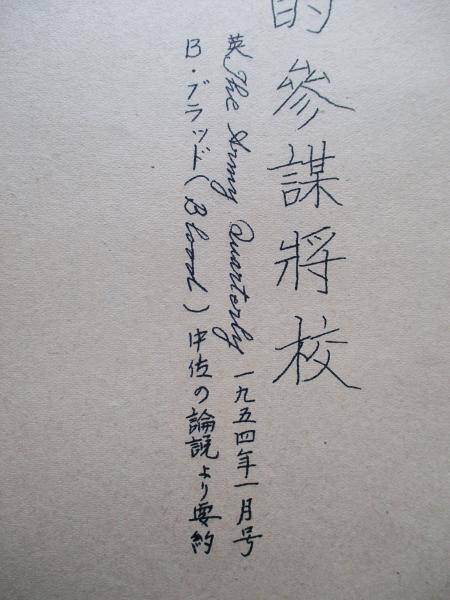 的參謀將校
英 The Army Quarterly 一九五四年一月号
B・ブラッド(Blood)中佐の論説より要約